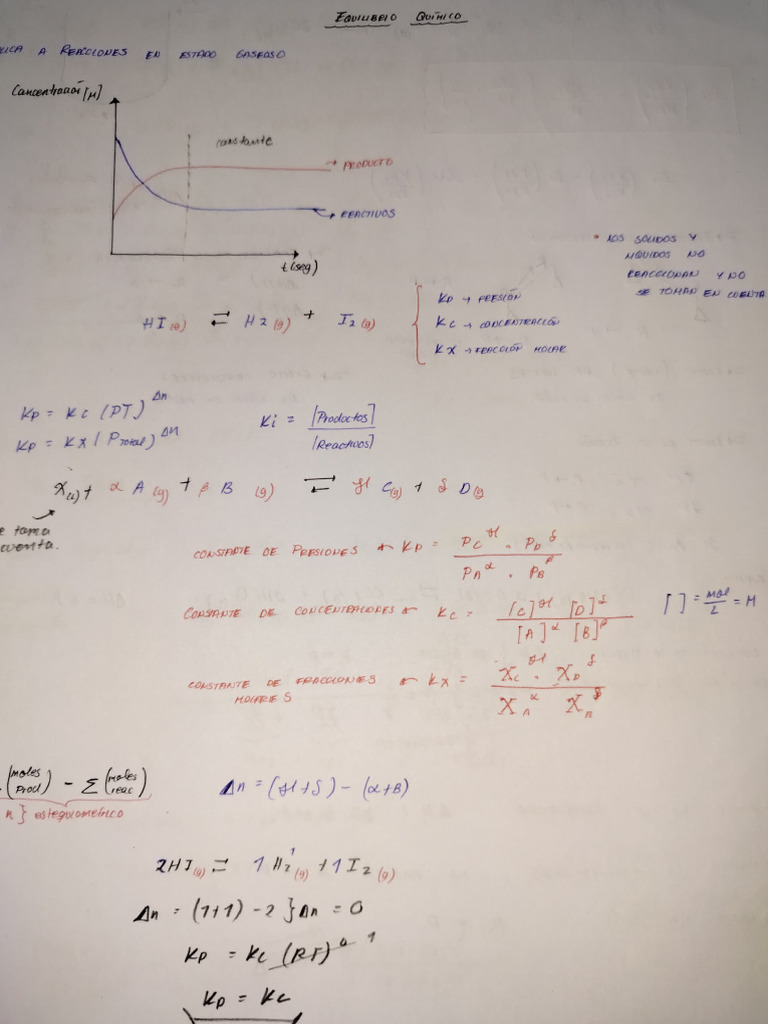 EQUILIBRIO QUÍMICO
A REACCIONES EN ESTADO GASEOSO
Concentración [M]
constante
→ PRODUCTO
→ REACTIVOS
t(seg)
• LOS SOLIDOS Y
LIQUIDOS NO
REACCIONAN Y NO
SE TOMAN EN CUENTA
HI(g) ⇌ H2(g) + I2(g)
KP → PRESIÓN
KC → CONCENTRACIÓN
KX → FRACCIÓN MOLAR
KP = KC (PT)^Δn
KP = KX (PTotal)^Δn
Ki = [Productos] / [Reactivos]
+ α A(g) + β B (g) ⇌ γ C(g) + δ D(g)
toma
cuenta.
CONSTANTE DE PRESIONES ← KP = PC^γ . PD^δ / PA^α . PB^β
CONSTANTE DE CONCENTRACIONES ← KC = [C]^γ [D]^δ / [A]^α [B]^β
[ ] = mol/L = M
CONSTANTE DE FRACCIONES ← KX = XC^γ . XD^δ / XA^α XB^β
MOLARES
(moles Prod) − Σ (moles reac)
n } estequiométrico
Δn = (γ+δ) − (α+B)
2HI(g) ⇌ 1 H2(g) + 1 I2(g)
Δn = (1+1) − 2 } Δn = 0
KP = KC (RT)^0 1
KP = KC